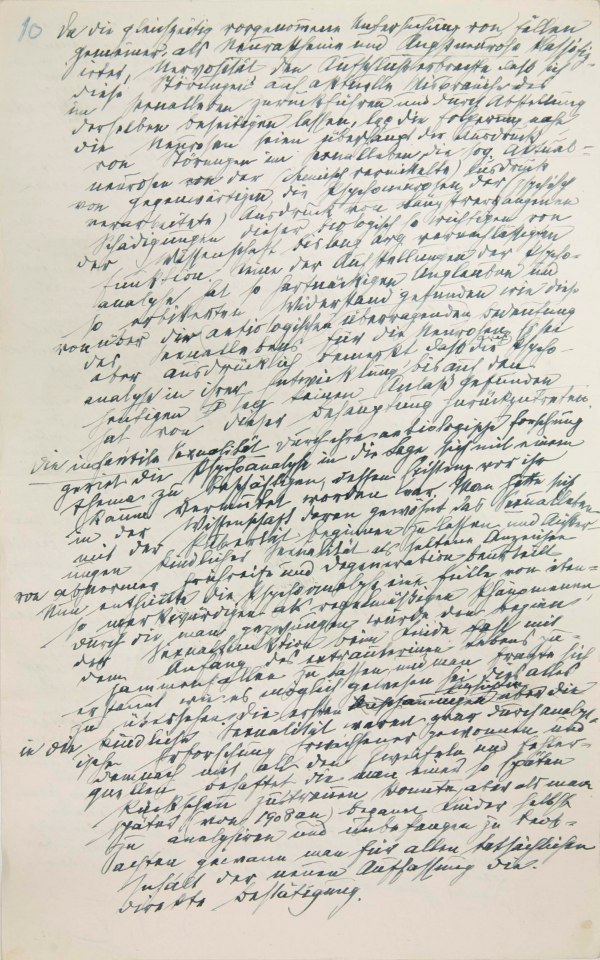 10
Da die gleichzeitig vorgenommene Untersuchung von Fällen
gemeiner, als Neurasthenie und Angstneurose klassifi-
zirter, Nervosität den Aufschluss erbrachte dass sich
diese Störungen auf aktuelle Missbräuche des
im Sexualleben zurückführen und durch Abstellung
derselben beseitigen lassen, lag die Folgerung nahe
die Neurosen seien überhaupt der Ausdruck
von Störungen im Sexualleben, die sog. Aktual-
neurosen von der (chemisch vermittelte) Ausdruck
von gegenwärtigen, die Psychoneurosen der (psychisch
verarbeitete) Ausdruck von längstvergangenen
Schädigungen dieser biologisch so wichtigen von
der Wissenschaft bislang arg vernachlässigten
Funktion. Keine der Aufstellungen der Psycho-
analyse hat so hartnäckigen Unglauben und
so erbitterten Widerstand gefunden wie diese
von über die ätiologischen überragenden Bedeutung
des Sexuallebens für die Neurosen. Es sei
aber ausdrücklich bemerkt, dass die Psycho-
analyse in ihrer Entwicklung bis auf den
heutigen Tag keinen Anlass gefunden
hat von dieser Behauptung zurückzutreten.
Die infantile Sexualität Durch ihre ätiologische Forschung
geriet die Psychoanalyse in die Lage sich mit einem
Thema zu beschäftigen, dessen Existenz vor ihr
kaum vermutet worden war. Man hatte sich
in der Wissenschaft daran gewöhnt das Sexualleben
mit der Pubertät beginnen zu lassen und Äusser-
ungen kindlicher Sexualität als seltene Anzeichen
von abnormer Frühreife und Degeneration beurteilt
Nun enthüllte die Psychoanalyse eine Fülle von eben-
so merkwürdigen als regelmässigen Phänomenen,
durch die man gezwungen wurde den Beginn
der Sexualfunktion beim Kinde fast mit
dem Anfang des extrauterinen Lebens zu-
sammenfallen zu lassen und man fragte sich
erstaunt wie es möglich gewesen sei dies alles
zu übersehen. Die ersten Einsichten
in die kindliche Sexualität waren zwar durch analyt-
ische Erforschung Erwachsener gewonnen und
demnach mit all den Zweifeln und Fehler-
quellen behaftet die man einer so späten
Rückschau zutrauen konnte, aber als man
später (von 1908 an) begann Kinder selbst
zu analysiren und unbefangen zu beob-
achten gewann man für allen tatsächlichen
Inhalt der neuen Auffassung die
direkte Bestätigung.